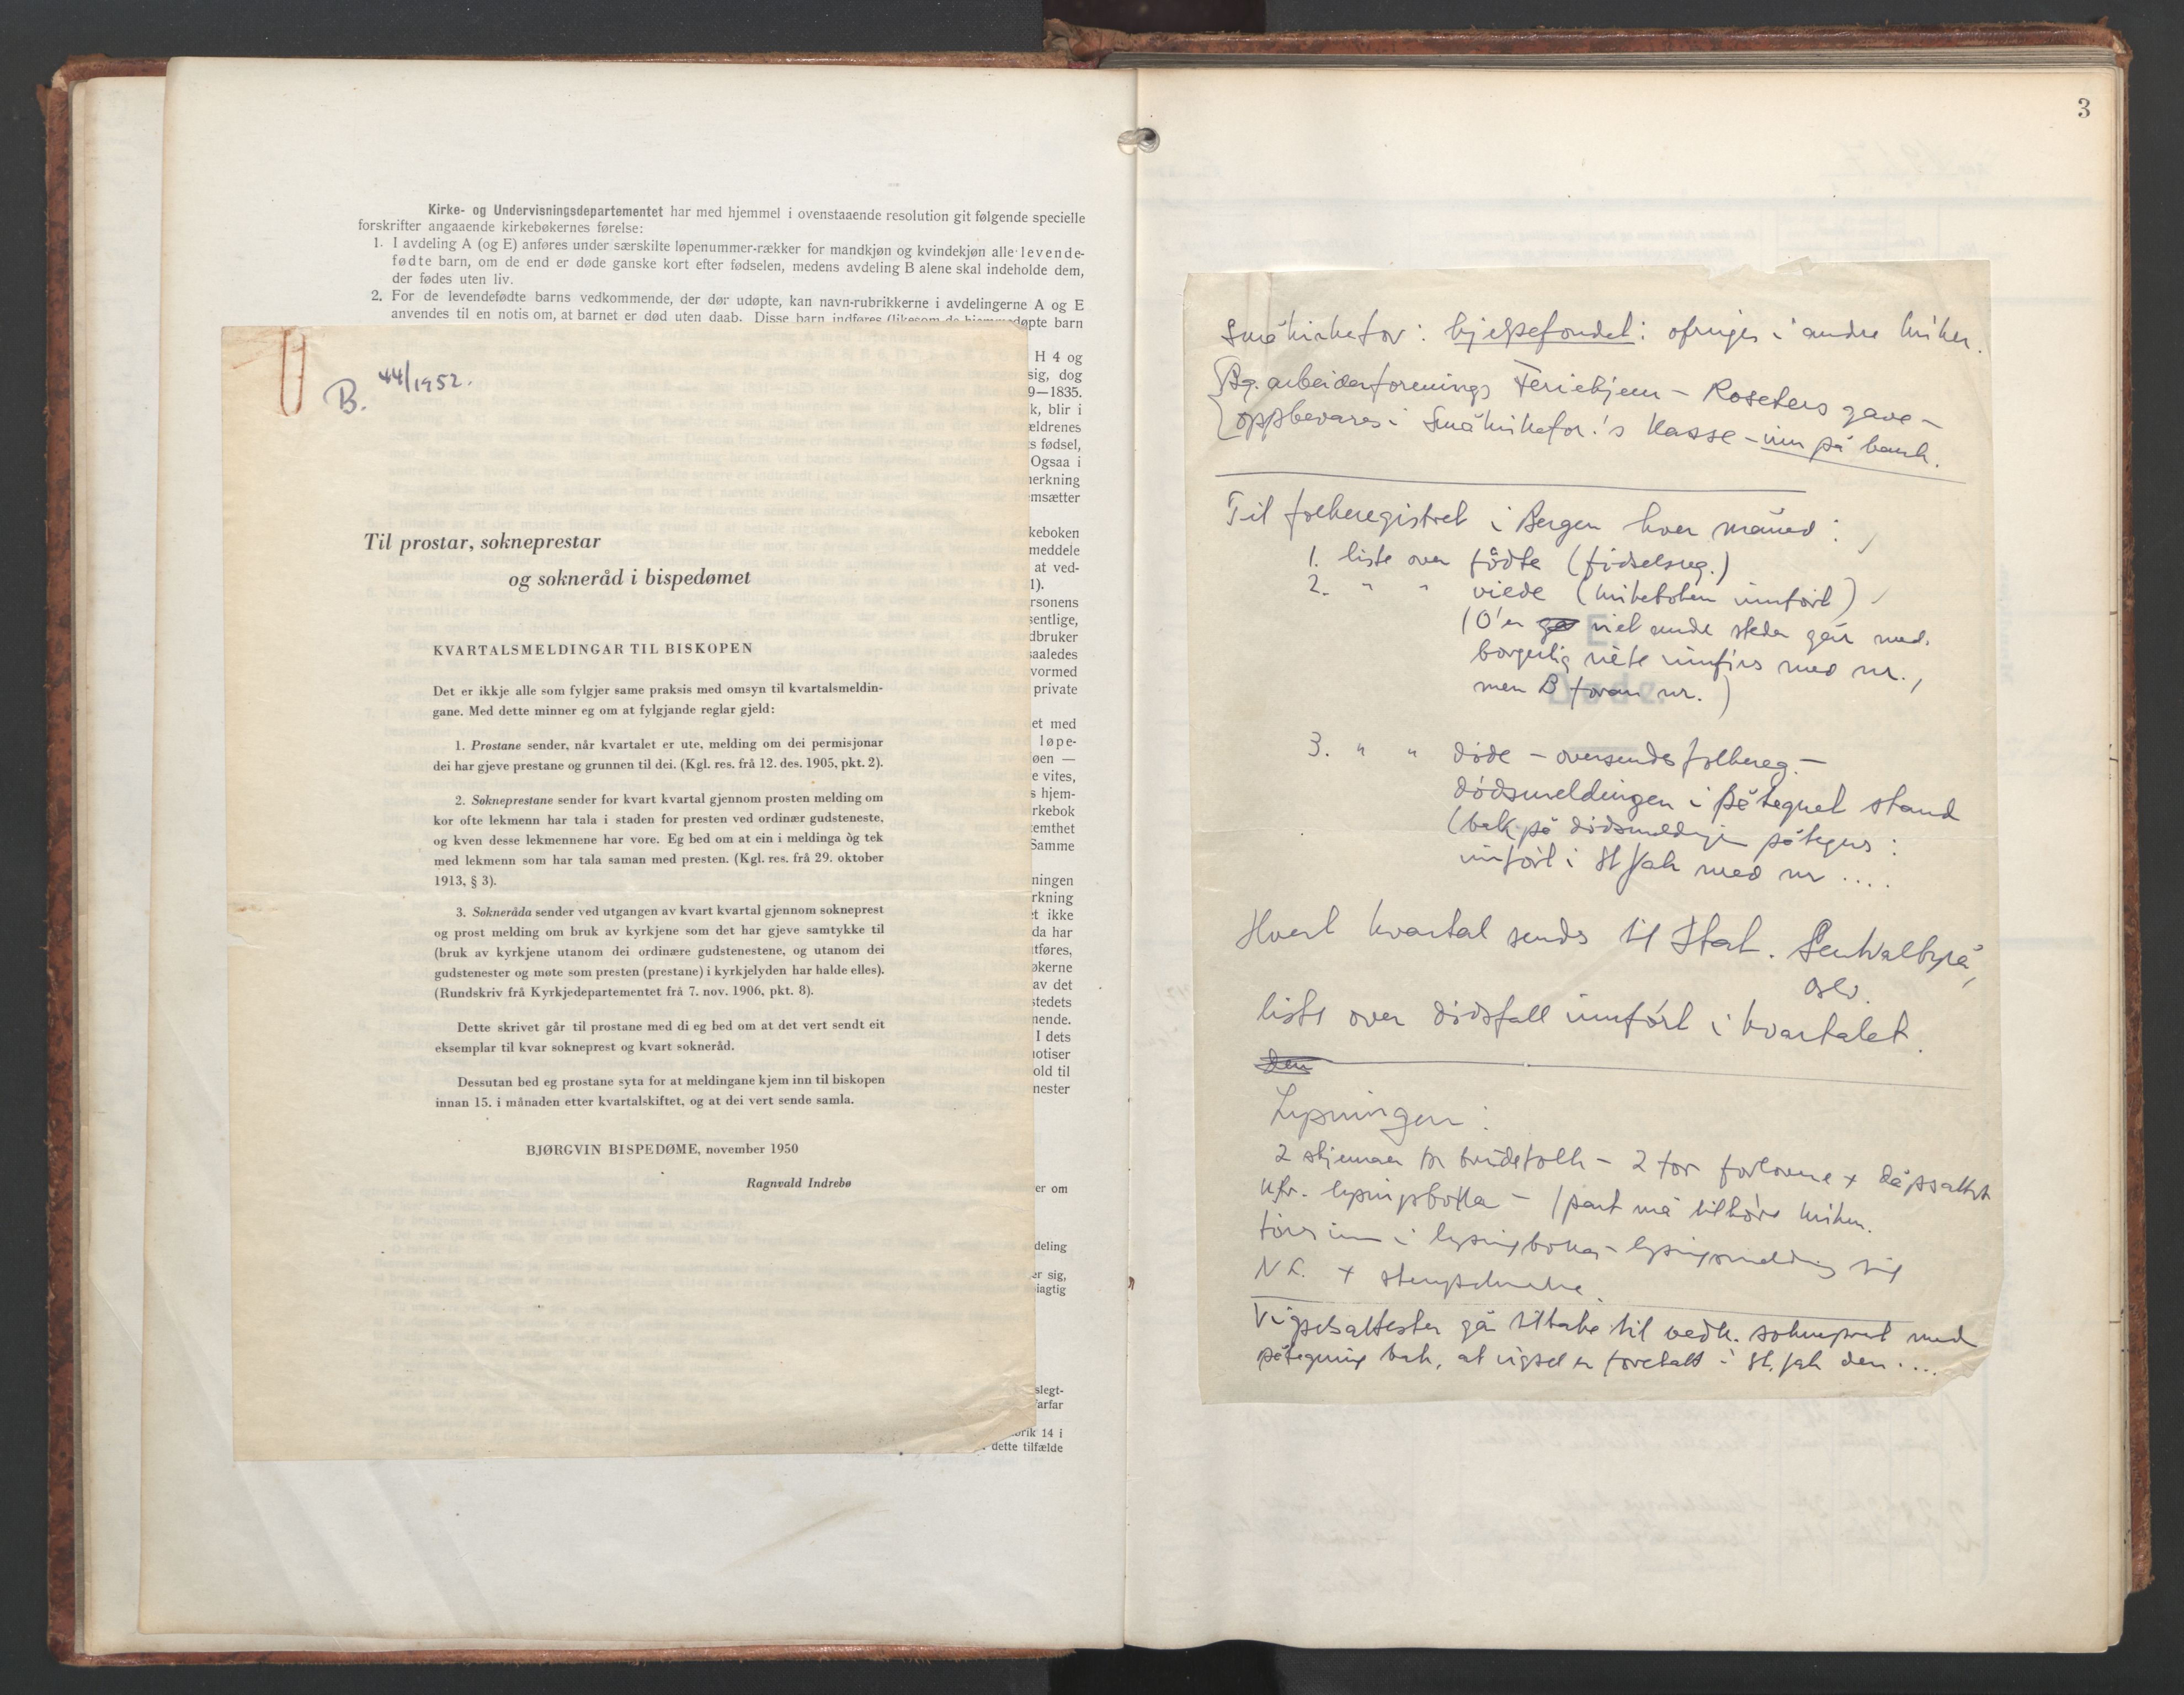 Kirke- og Undervisningsdepartementet har med hjemmel i ovenstaaende resolution git følgende specielle
forskrifter angaaende kirkebøkernes førelse:
1. I avdeling A (og E) anføres under særskilte løpenummer-rækker for mandkjøn og kvindekjøn alle levende-
fødte barn, om de end er døde ganske kort efter fødselen, medens avdeling B alene skal indeholde dem,
der fødes uten liv.
2. For de levendefødte barns vedkommende, der dør udøpte, kan navn-rubrikkerne i avdelingerne A og E
anvendes til en notis om, at barnet er død uten daab. Disse barn indføres (likesom de hjemmedøpte barn
H 4 og
sig, dog
9—1835.
k, blir i
ældrenes
s fødsel,
Ogsaa i
merkning
emsætter
keboken
meddele
at ved-
1).
rsonens
sentlige,
dbruker
saaledes
vormed
private
et med
løpe-
øen —
e vites,
s hjem-
rkebok
temthet
Samme
ningen
rkning
t ikke
da har
tføres,
økerne
av det
stedets
nende.
I dets
notiser
old til
nester
er om
deling
er sig,
iagtig
slegt-
farfar
brik 14 i
dette tilfælde
B. 44/1952.
Til prostar, sokneprestar
og sokneråd i bispedømet
KVARTALSMELDINGAR TIL BISKOPEN
Det er ikkje alle som fylgjer same praksis med omsyn til kvartalsmeldin-
gane. Med dette minner eg om at fylgjande reglar gjeld:
1. Prostane sender, når kvartalet er ute, melding om dei permisjonar
dei har gjeve prestane og grunnen til dei. (Kgl. res. frå 12. des. 1905, pkt. 2).
2. Sokneprestane sender for kvart kvartal gjennom prosten melding om
kor ofte lekmenn har tala i staden for presten ved ordinær gudsteneste,
og kven desse lekmennene har vore. Eg bed om at ein i meldinga òg tek
med lekmenn som har tala saman med presten. (Kgl. res. frå 29. oktober
1913, § 3).
3. Sokneråda sender ved utgangen av kvart kvartal gjennom sokneprest
og prost melding om bruk av kyrkjene som det har gjeve samtykke til
(bruk av kyrkjene utanom dei ordinære gudstenestene, og utanom dei
gudstenester og møte som presten (prestane) i kyrkjelyden har halde elles).
(Rundskriv frå Kyrkjedepartementet frå 7. nov. 1906, pkt. 8).
Dette skrivet går til prostane med di eg bed om at det vert sendt eit
eksemplar til kvar sokneprest og kvart sokneråd.
Dessutan bed eg prostane syta for at meldingane kjem inn til biskopen
innan 15. i månaden etter kvartalskiftet, og at dei vert sende samla.
BJØRGVIN BISPEDØME, november 1950
Ragnvald Indrebø
3
Småkirkefor: hjelpefondet: ofringer i andre kirker.
Bg. arbeiderforenings Feriehjem – Roseters gave –
oppbevares i Småkirkefor.'s kasse – inn på bank.
Til folkeregistret i Bergen hver måned:
1. liste over fødte (fødselsreg.)
2. " " viede (kirkeboken innført)
viet andre steder går med.
borgerlig viete innføres med nr.,
men B foran nr.)
E.
Døde.
3. " " døde – oversendes folkereg. –
dødsmeldingen i påtegnet stand
(bak på dødsmeldingen påtegnes:
innført i St Jak med nr ....
Hvert kvartal sendes til Stat. Sentralbyrå,
Oslo.
liste over dødsfall innført i kvartalet.
den
Lysningen:
2 skjemaer for brudefolk – 2 for forlovere + dåpsattest
kfr. lysningsboka – 1 part må tilhøre kirken.
føres inn i lysningsboka – lysningsmelding til
Vigselsattester gå tilbake til vedk. sokneprest med
påtegning bak, at vigsel er foretatt i St. Jak den ....